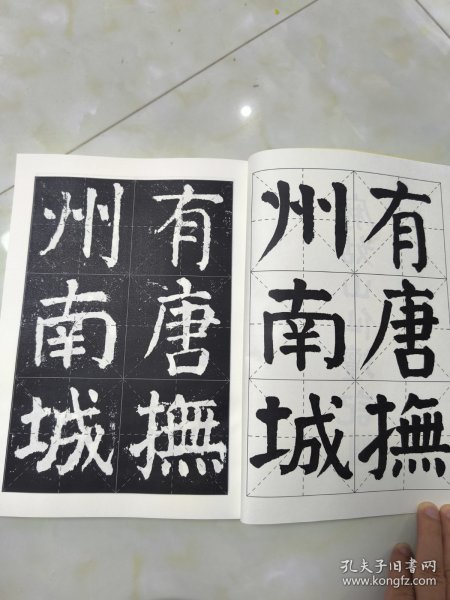 有唐撫
州南城
有唐撫
州南城
孔夫子旧书网
www.kongfz.com